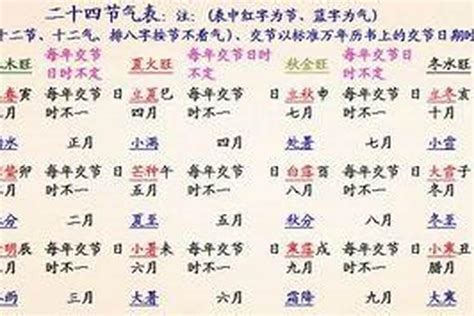 二十四节气表：注：(表中红字为节、蓝字为气)
十二节、十二气，排八字按节不看气)、交节以标准万年历书上的交节日期时
木旺 每年交节日时不定 夏火旺 每年交节日时不定 秋金旺 每年交节日时不定 冬水旺
春寅 每年交节 日 立夏巳 每年交节 日 立秋申 每年交节 日 立冬亥
月 时不一 四月 时不一 七月 时不一 十月
水 正月 小满 四月 处暑 七月 小雪
蛰卯 每年交节 日 芒种午 每年交节 日 白露酉 每年交节 日 大雪子
月 时不一 五月 时不一 八月 时不一 冬月
分 二月 夏至 五月 秋分 八月 冬至
明辰 每年交节 日 小暑未 每年交节 日 寒露戌 每年交节 日 小寒丑
月 时不一 六月 时不一 九月 时不一 腊月
雨 三月 大暑 六月 霜降 九月 大寒